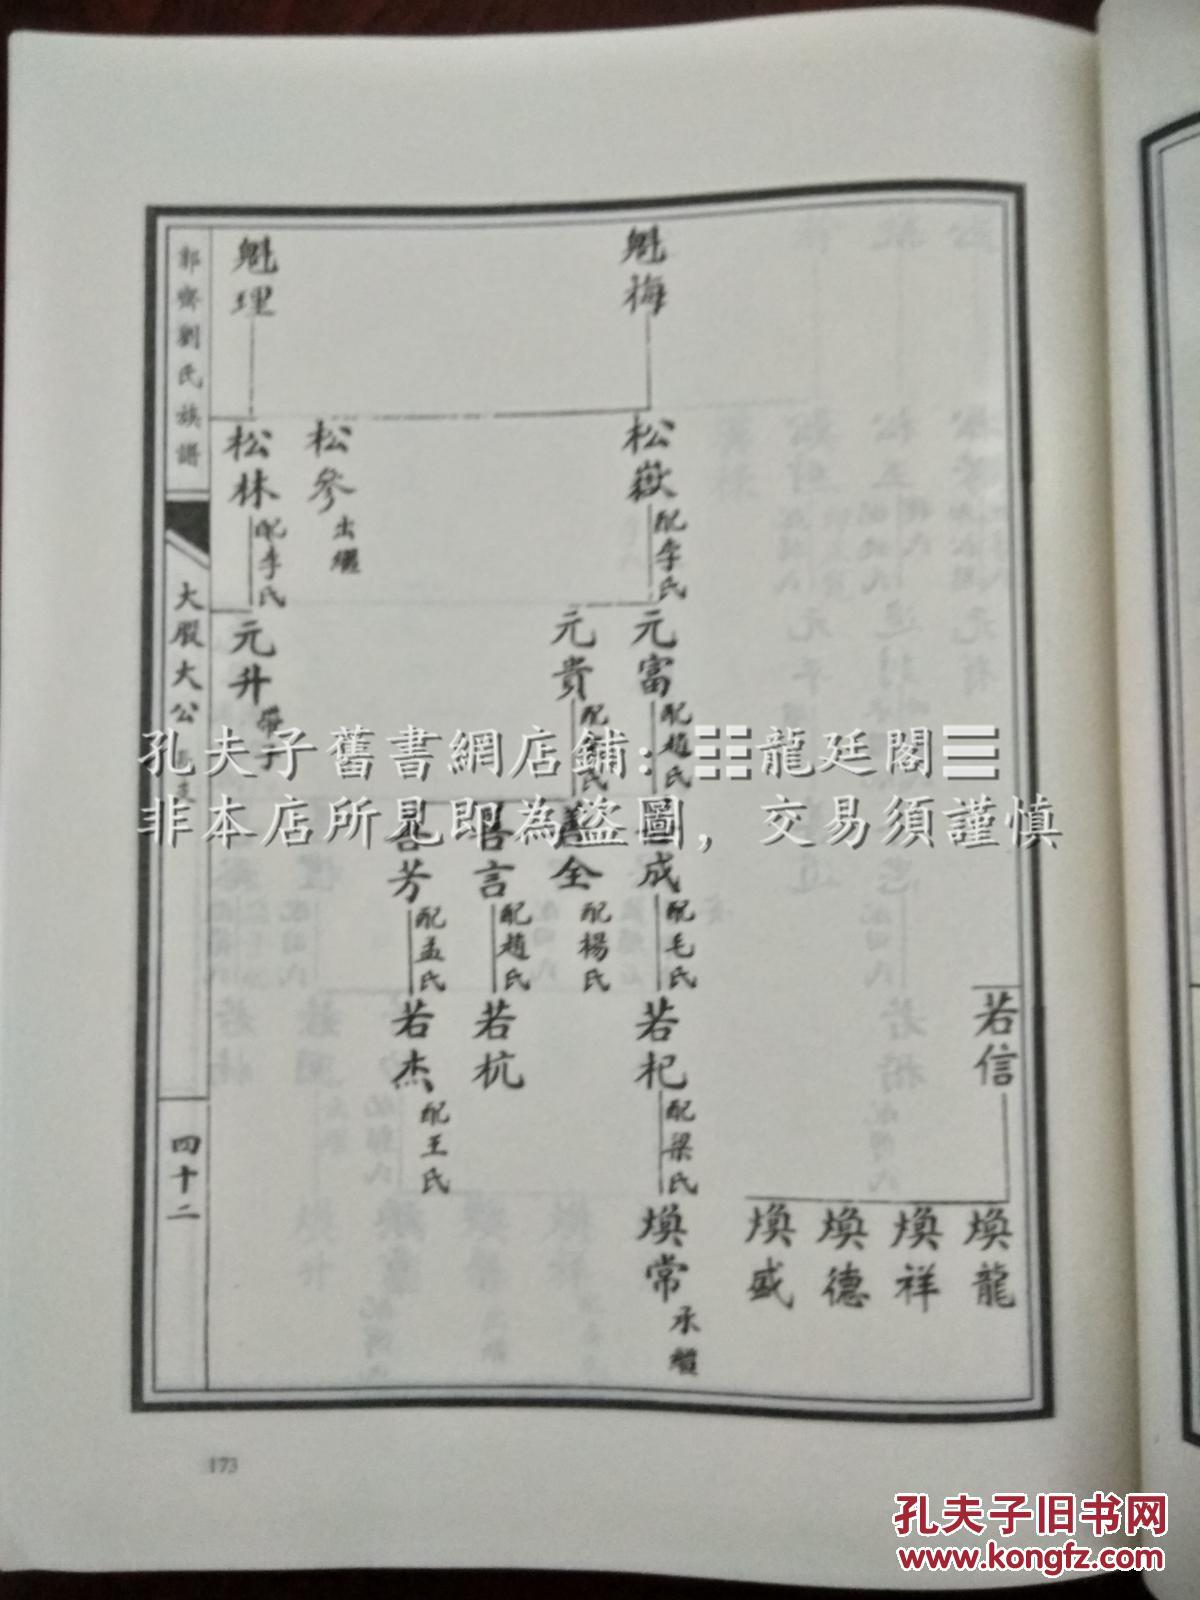 郭齊劉氏族譜
大殷大公長支
四十二
魁梅
魁理
松嶽 配李氏
松參 出繼
松林 配李氏
元富 配趙氏
元貴
元升
成 配毛氏
全 配楊氏
言 配趙氏
芳 配孟氏
若信
若杞 配梁氏
若杭
若杰 配王氏
煥龍
煥祥
煥德
煥盛
煥常 承繼
孔夫子舊書網店鋪：龍廷閣
非本店所見即為盜圖，交易須謹慎
173
孔夫子旧书网
www.kongfz.com